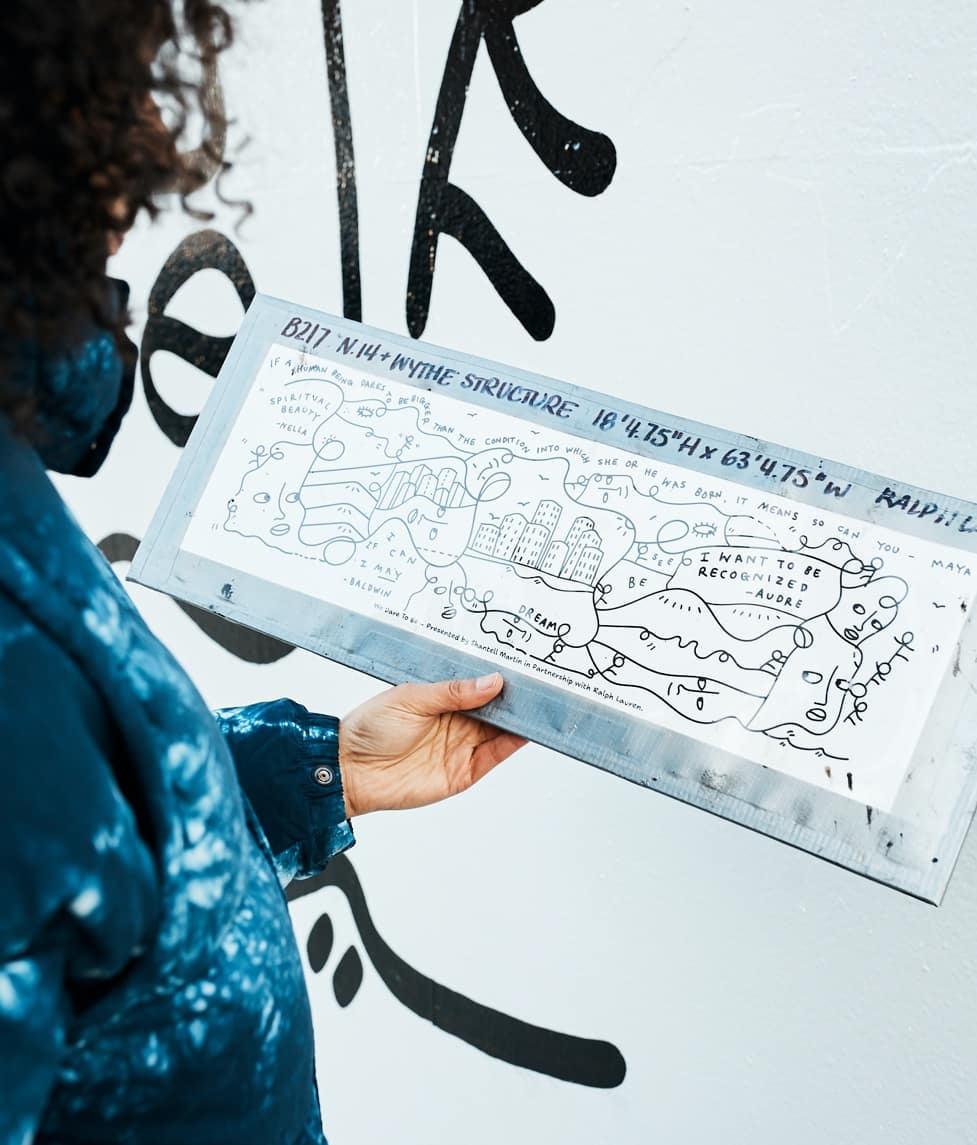 elk
B217 N.14 + WYTHE STRUCTURE 18'4.75"H x 63'4.75"W RALPH L
IF A HUMAN BEING DARES TO BE BIGGER THAN THE CONDITION INTO WHICH SHE OR HE WAS BORN, IT MEANS SO CAN YOU - MAYA
SPIRITUAL
BEAUTY
-NELLA
I
IF CAN
I MAY
-BALDWIN
SEE
BE
I WANT TO BE
RECOGNIZED
-AUDRE
DREAM
We Dare To Be - Presented by Shantell Martin in Partnership with Ralph Lauren.